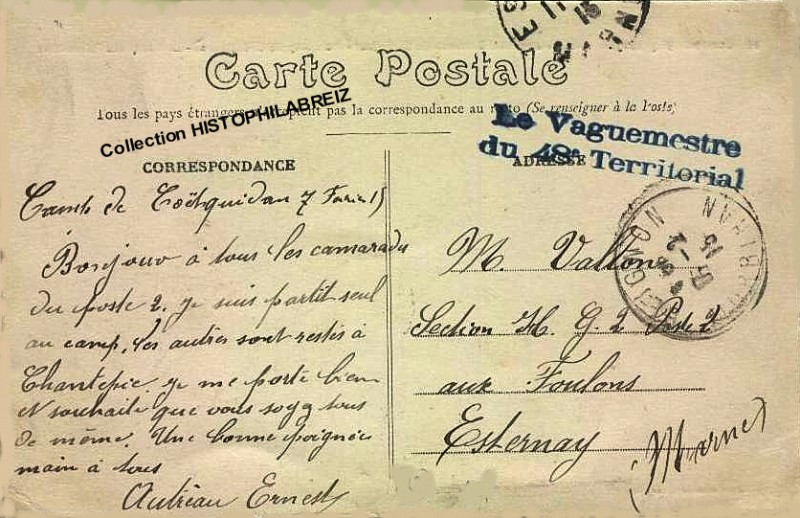 Carte Postale
Tous les pays étrangers n'acceptent pas la correspondance au recto (Se renseigner à la Poste)
Collection HISTOPHILABREIZ
Le Vaguemestre
du 48e Territorial
CORRESPONDANCE
Camp de Coëtquidan 7 Février 15
Bonjour à tous les camarades
du poste 2. je suis partit seul
au camp, les autres sont restés à
Chantepie. je me porte bien
et souhaite que vous soyez tous
de même. Une bonne poignée
main à tous
Autréau Ernest
ADRESSE
M. Vallon
Section H. G. 2 Poste 2
aux Foulons
Esternay
(Marne)
GUIGNON
MORBIHAN
-2
15